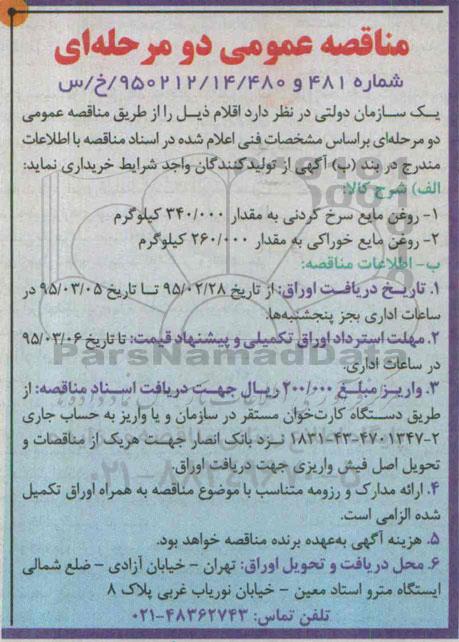 مناقصه عمومی دو مرحله‌ای
شماره ۴۸۱ و ۹۵۰۲۱۲/۱۴/۴۸۰/خ/س
یک سازمان دولتی در نظر دارد اقلام ذیل را از طریق مناقصه عمومی
دو مرحله‌ای براساس مشخصات فنی اعلام شده در اسناد مناقصه با اطلاعات
مندرج در بند (ب) آگهی از تولیدکنندگان واجد شرایط خریداری نماید:
الف) شرح کالا:
۱- روغن مایع سرخ کردنی به مقدار ۳۴۰/۰۰۰ کیلوگرم
۲- روغن مایع خوراکی به مقدار ۲۶۰/۰۰۰ کیلوگرم
ب- اطلاعات مناقصه:
۱. تاریخ دریافت اوراق: از تاریخ ۹۵/۰۲/۲۸ تا تاریخ ۹۵/۰۳/۰۵ در
ساعات اداری بجز پنجشنبه‌ها.
۲. مهلت استرداد اوراق تکمیلی و پیشنهاد قیمت: تا تاریخ ۹۵/۰۳/۰۶
در ساعات اداری.
ParsNamadData
۳. واریز مبلغ ۲۰۰/۰۰۰ ریال جهت دریافت اسناد مناقصه: از
طریق دستگاه کارت‌خوان مستقر در سازمان و یا واریز به حساب جاری
۱۸۳۱-۴۳-۴۷۰۱۳۴۷-۲ نزد بانک انصار جهت هریک از مناقصات و
تحویل اصل فیش واریزی جهت دریافت اوراق.
۴. ارائه مدارک و رزومه متناسب با موضوع مناقصه به همراه اوراق تکمیل
شده الزامی است.
۵. هزینه آگهی به‌عهده برنده مناقصه خواهد بود.
۶. محل دریافت و تحویل اوراق: تهران - خیابان آزادی - ضلع شمالی
ایستگاه مترو استاد معین - خیابان نوریاب غربی پلاک ۸
تلفن تماس: ۴۸۳۶۲۷۴۳-۰۲۱